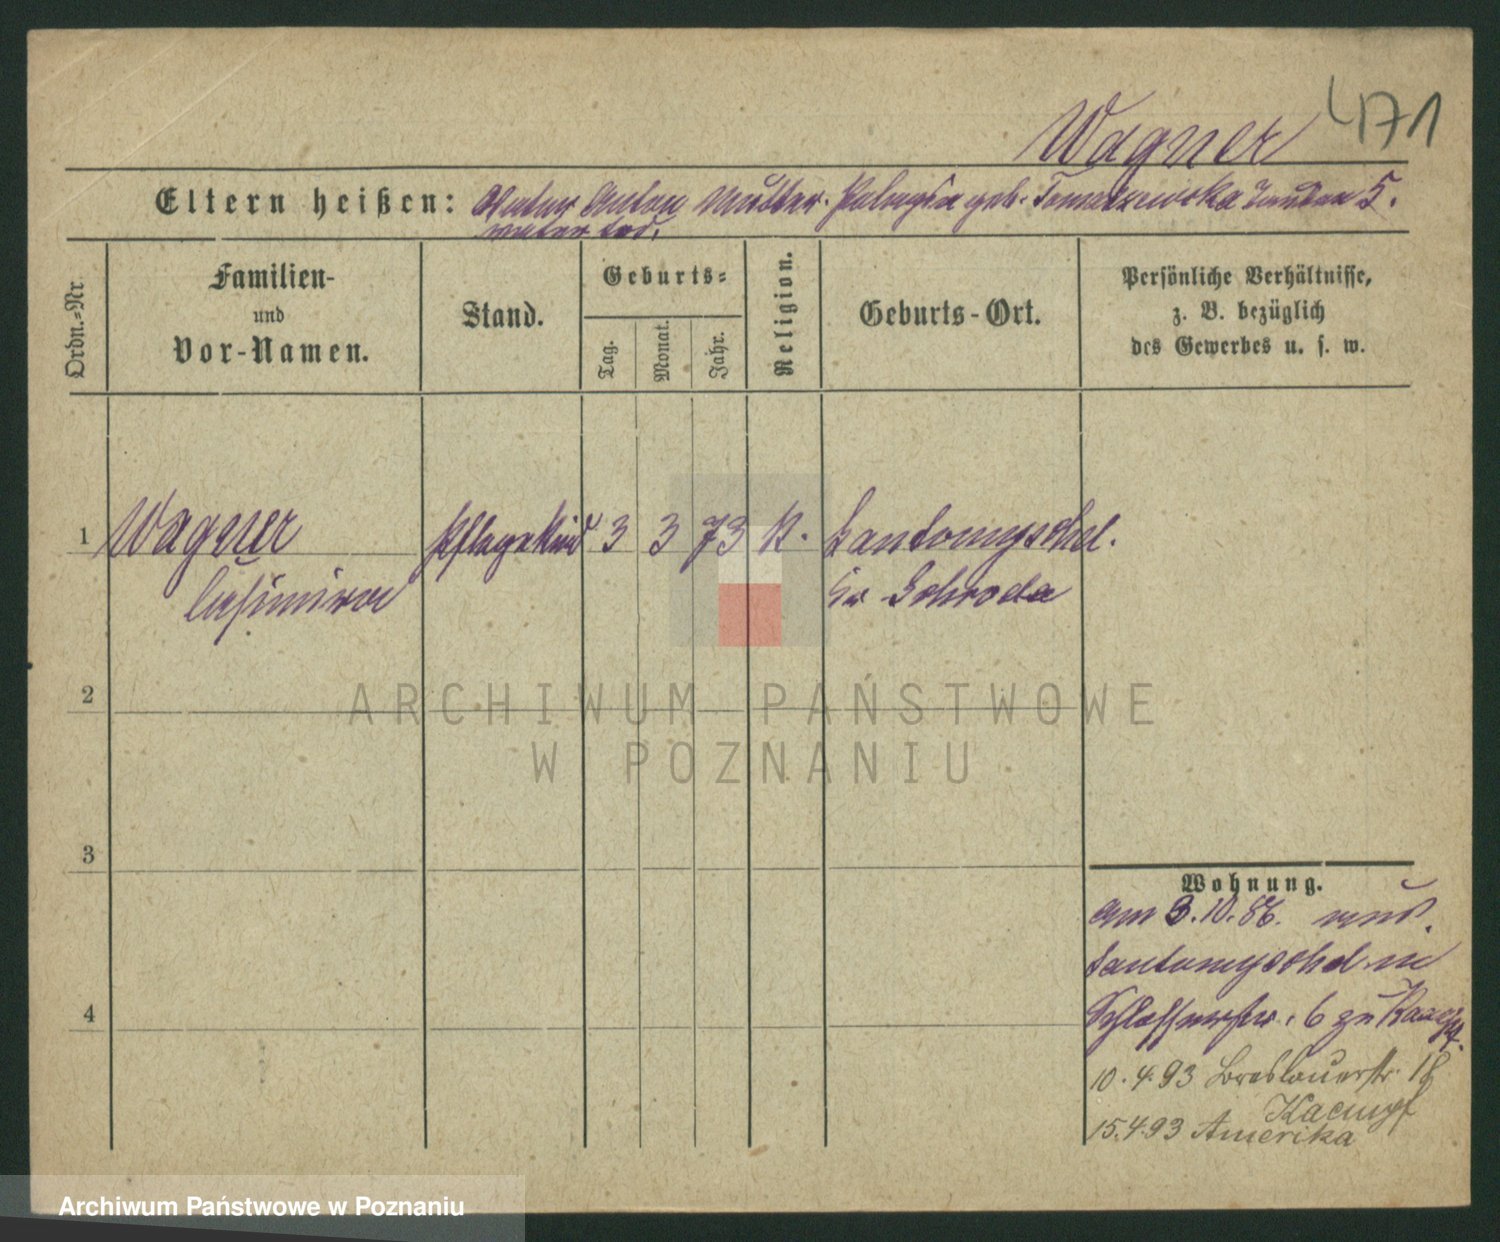 471
Wagner
Eltern heißen: Vater Anton Mutter. Pelagia geb. Tomaszewska 5.
Vater tod.
Ordn.-Nr.
Familien-
und
Vor-Namen.
Stand.
Geburts-
Tag.
Monat.
Jahr.
Religion.
Geburts-Ort.
Persönliche Verhältnisse,
z. B. bezüglich
des Gewerbes u. s. w.
1 Wagner Pflegekind 3 3 73 K. Santomyschel.
Casimira Schroda
2
ARCHIWUM PAŃSTWOWE
W POZNANIU
3
Wohnung.
am 3.10.86. aus.
Santomyschel in
Schlosserstr. 6 zu
4
10.4.93 Breslauerstr. 18
15.4.93 Amerika
Archiwum Państwowe w Poznaniu